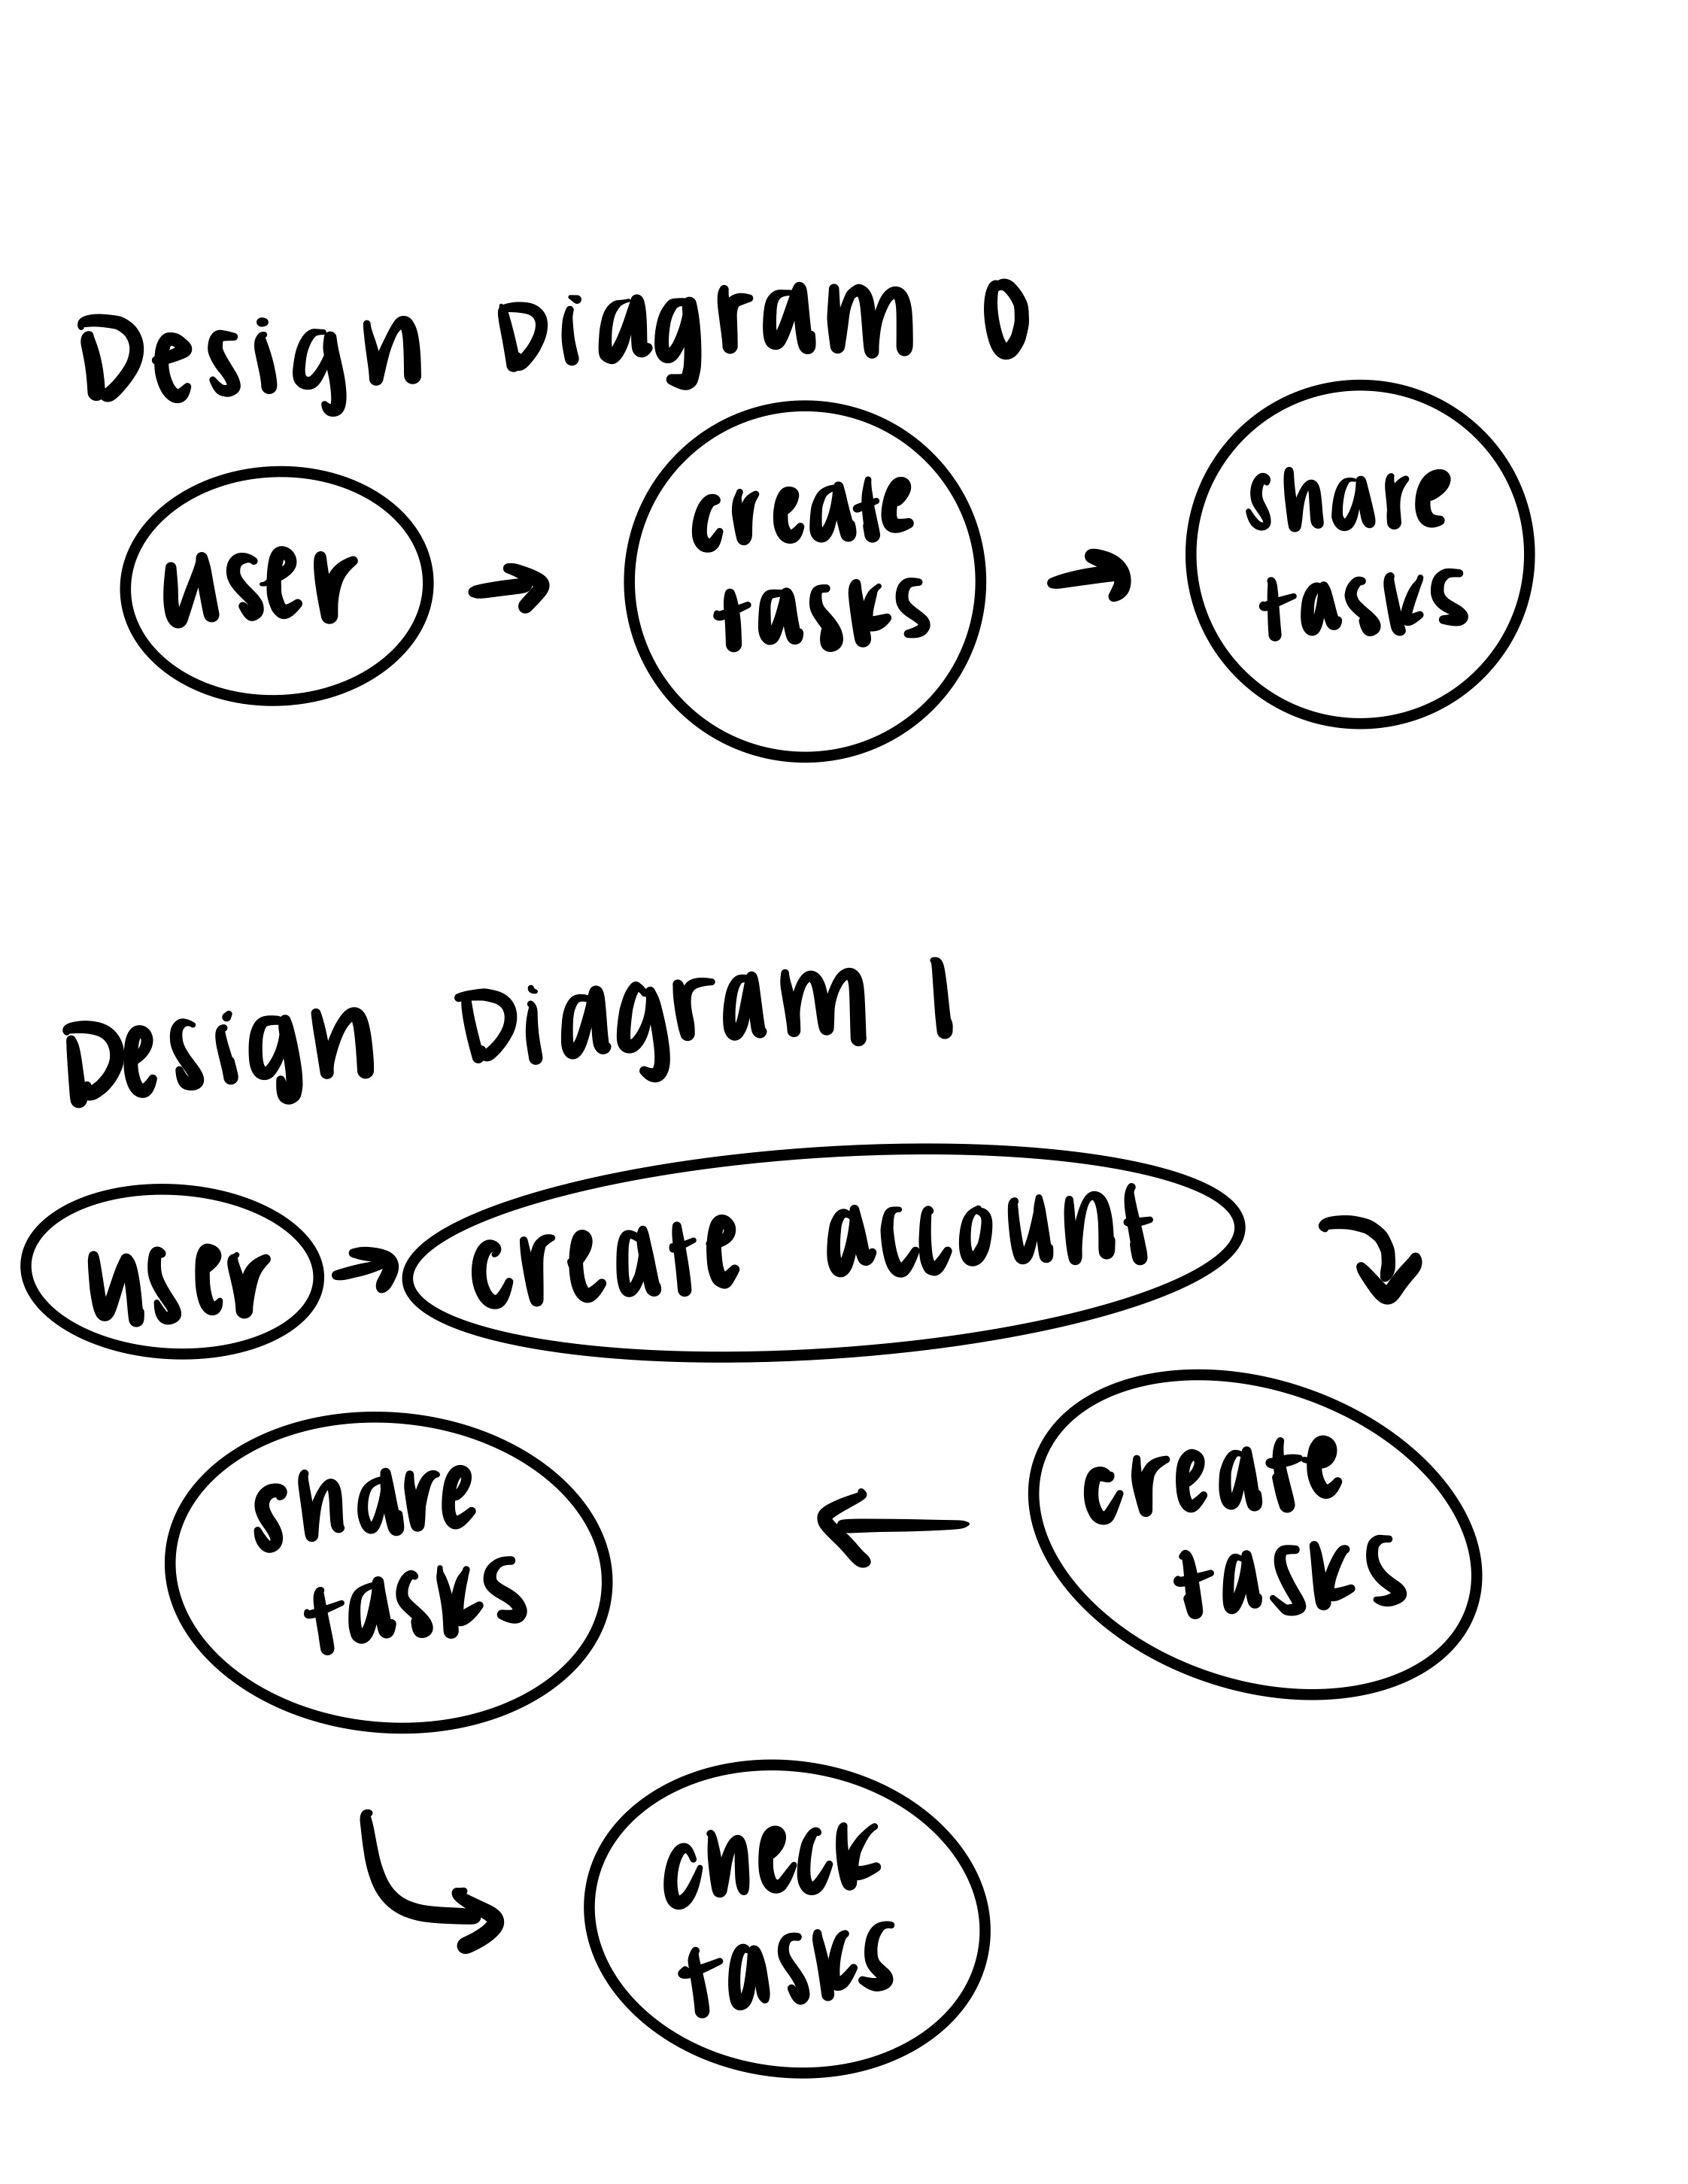 Design Diagram 0
user
create
tasks
share
tasks
Design Diagram 1
user
create account
create
tasks
share
tasks
check
tasks